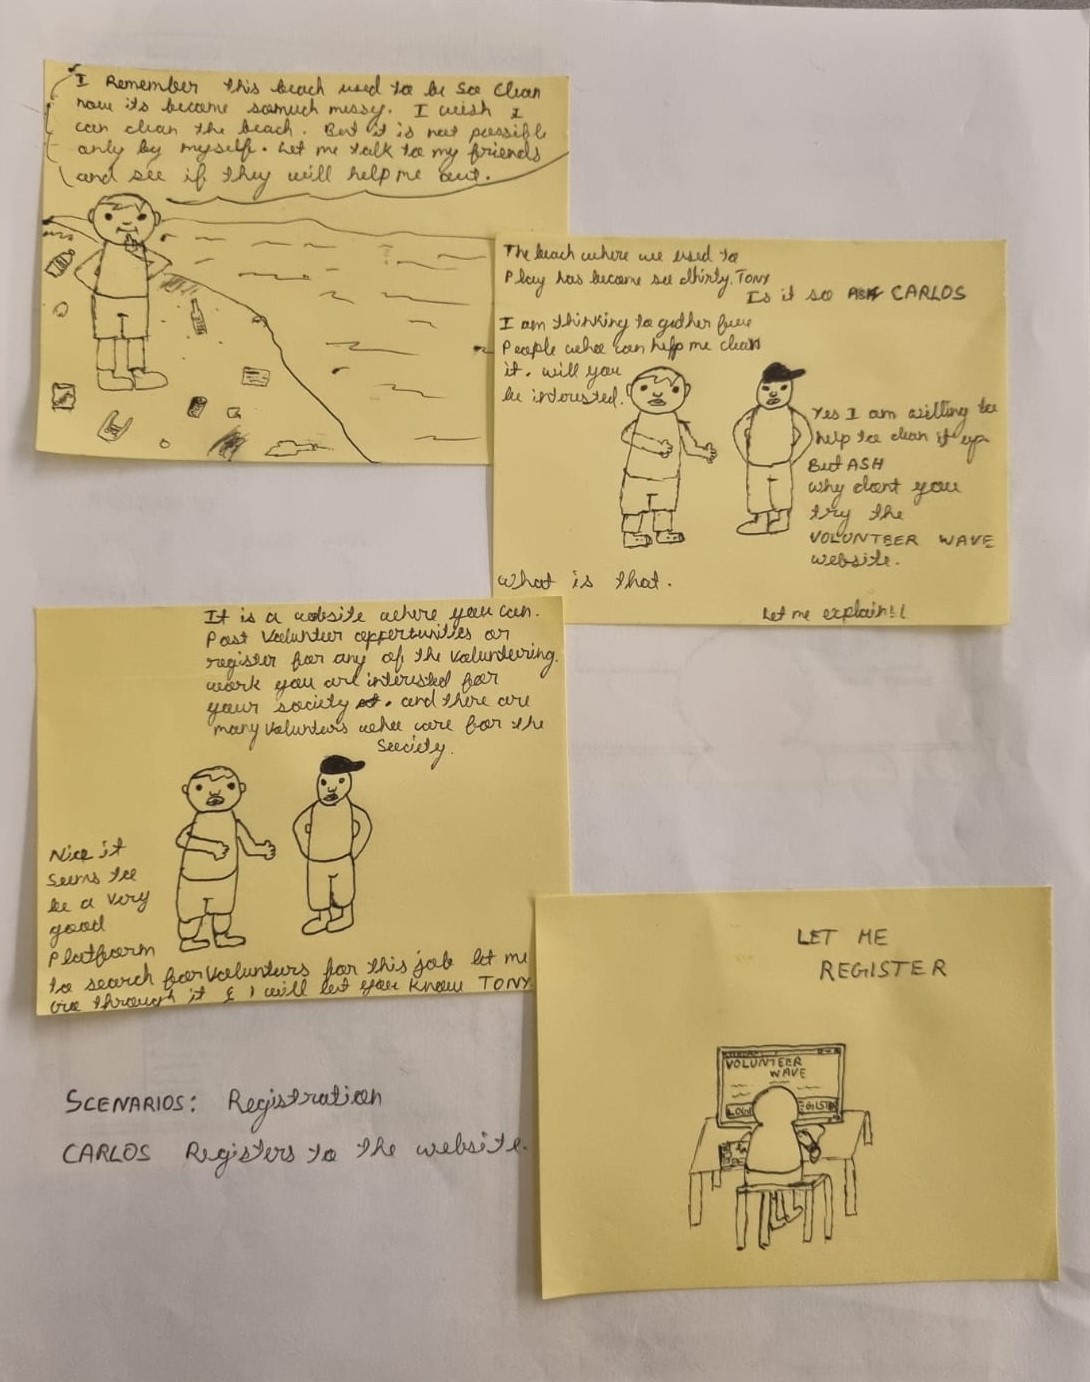 I Remember this beach used to be so clean
now its become somuch messy. I wish I
can clean the beach. But it is not possible
only by myself. Let me talk to my friends
and see if they will help me out.
The beach where we used to
Play has become so dirty. TONY
Is it so CARLOS
I am thinking to gather few
People who can help me clean
it. will you
be intrested.
Yes I am willing to
help to clean it up
But ASH
why dont you
try the
VOLUNTEER WAVE
website.
What is that.
Let me explain!!
It is a website where you can.
Post Volunter oppertunities or
register for any of the Volunteering.
work you are interested for
your society. and there are
many Volunters who care for the
Society.
Nice it
Seems to
be a very
good
Platform
to search for Volunters for this job let me
Go through it & I will let you know TONY
LET ME
REGISTER
VOLUNTEER
WAVE
SCENARIOS: Registration
CARLOS Registers to the website.